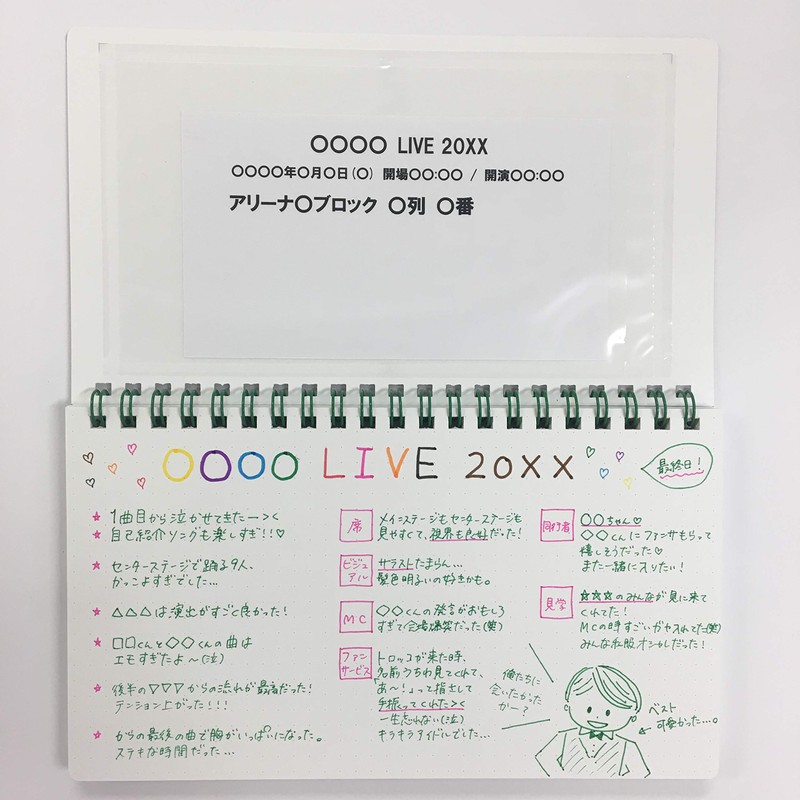 〇〇〇〇 LIVE 20XX
〇〇〇〇年〇月〇日(〇) 開場〇〇:〇〇 / 開演〇〇:〇〇
アリーナ〇ブロック 〇列 〇番
〇〇〇〇 LIVE 20XX
最終日!
★ 1曲目から泣かせてきたー><
★ 自己紹介ソングも楽しすぎ!!♡
★ センターステージで踊る9人、
かっこよすぎでした…
★ △△△は演出がすごく良かった!
★ □□くんと◇◇くんの曲は
エモすぎたよ〜(泣)
★ 後半の▽▽▽からの流れが最高だった!
テンション上がった!!!
★ からの最後の曲で胸がいっぱいになった。
ステキな時間だった…
席
メインステージもセンターステージも
見やすくて、視界も良好だった!
ビジュアル
サラストたまらん…
髪色明るいの好きかも。
MC
◇◇くんの発言がおもしろ
すぎて会場爆笑だった(笑)
ファンサービス
トロッコが来た時、
名前うちわ見てくれて、
あ〜!って指さして
手振ってくれた><
一生忘れない(泣)
キラキラアイドルでした…
同行者
〇〇ちゃん♡
◇◇くんにファンサもらって
嬉しそうだった♡
また一緒に入りたい!
見学
☆☆☆のみんなが見に来て
くれてた!
MCの時すごいガヤ入れてた(笑)
みんな私服オシャレだった!
俺たちに
会いたかった
かー?
ベスト
可愛かった…。